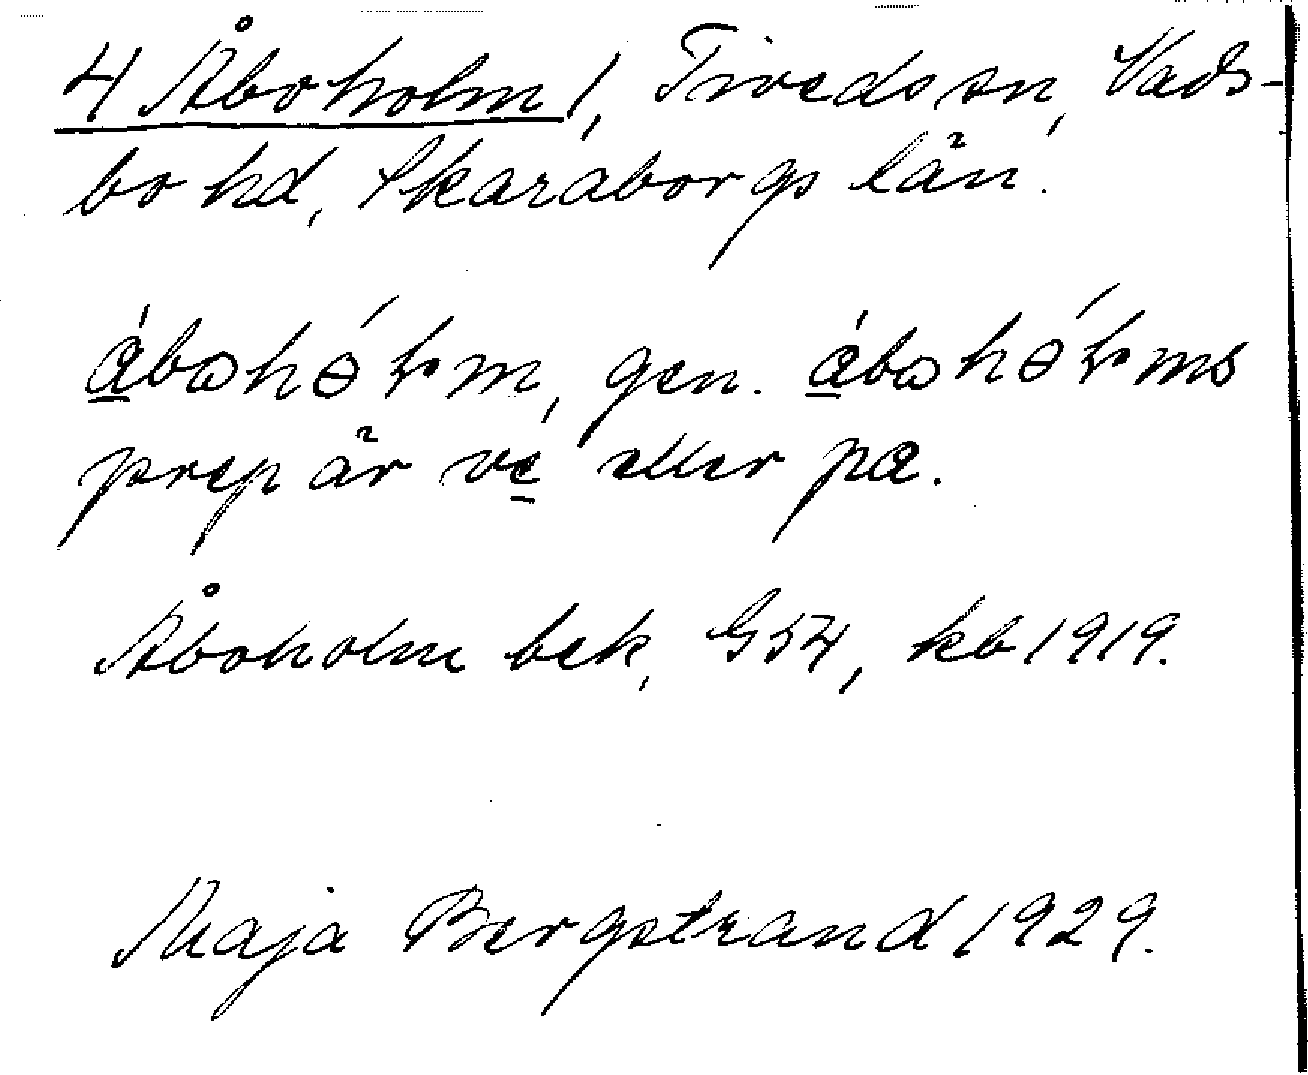 4 Åboholm 1, Tiveds sn, Vads-
bo hd, Skaraborgs län.
á̲bωhɵ́ɽm, gen. á̲bωhɵ́ɽms
prep är ve̲ eller pa.
Åboholm bek, G54, kb 1919.
Maja Bergstrand 1929.